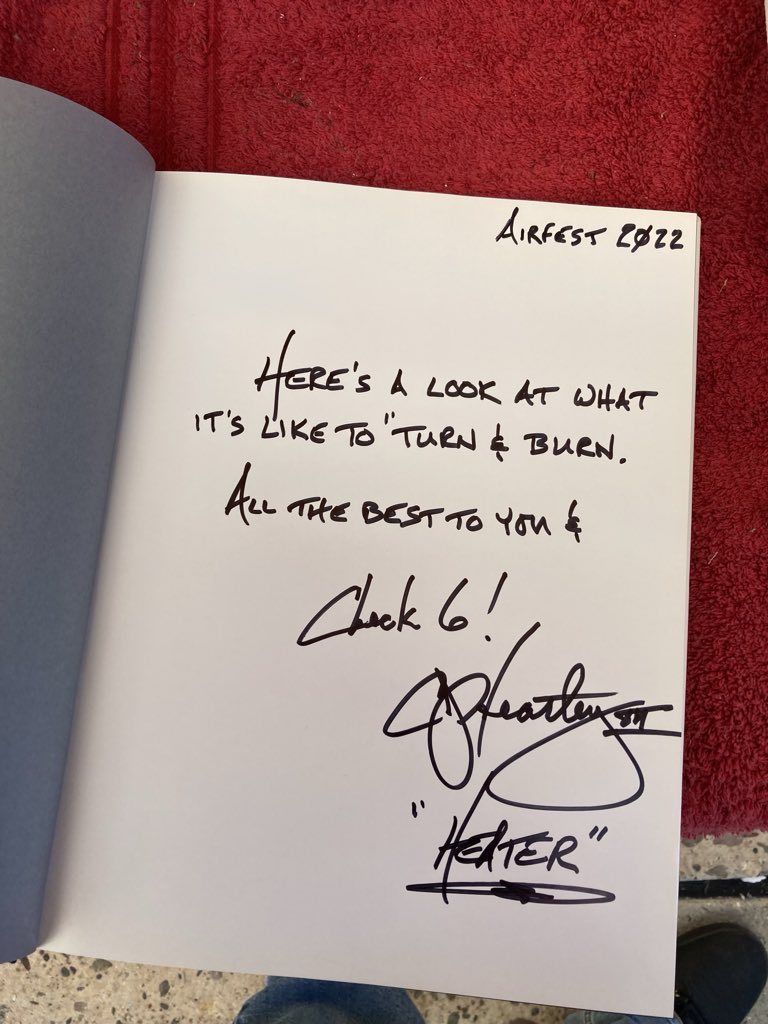 AIRFEST 2022
HERE'S A LOOK AT WHAT
IT'S LIKE TO "TURN & BURN.
ALL THE BEST TO YOU &
Check 6!
CJ Heatley III
"HEATER"